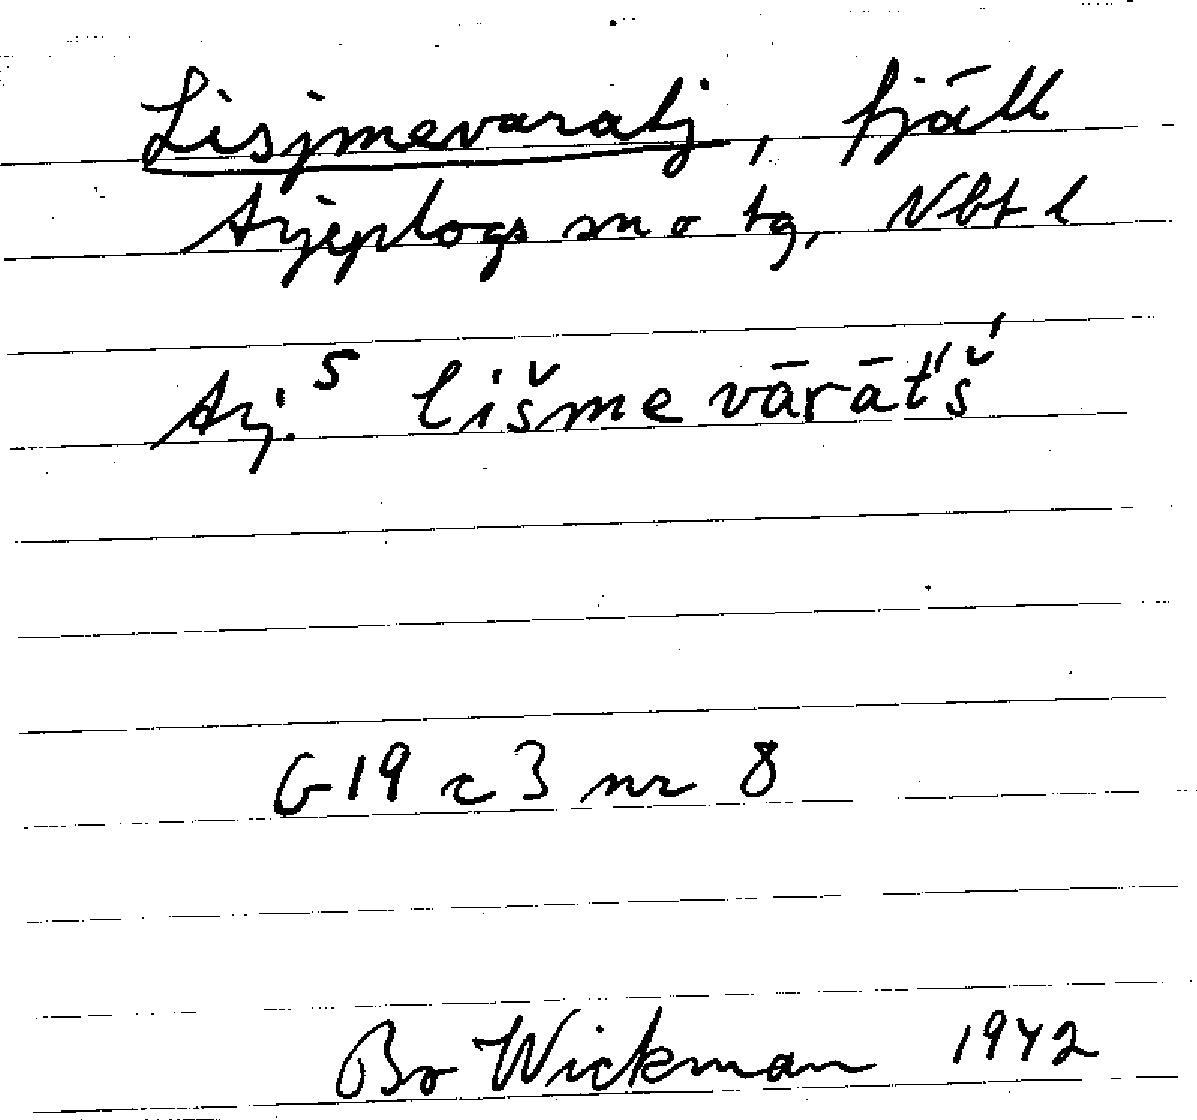 Lisjmevaratj, fjäll
Arjeplogs sn o tg, Nbt l
Arj.ˢ lišmevārāt́'š́
G19 c 3 nr 8
Bo Wickman 1942